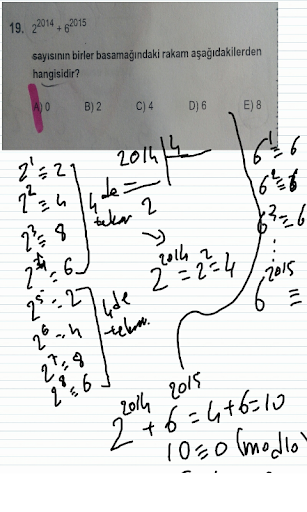 19. 2^2014 + 6^2015
sayısının birler basamağındaki rakam aşağıdakilerden
hangisidir?
A) 0 B) 2 C) 4 D) 6 E) 8
2^1 ≡ 2
2^2 ≡ 4
2^3 ≡ 8
2^4 ≡ 6
4 de
tekrar
2^5 ≡ 2
2^6 ≡ 4
2^7 ≡ 8
2^8 ≡ 6
4 de
tekrar.
2014 | 4
2
→
2^2014 ≡ 2^2 = 4
6^1 ≡ 6
6^2 ≡ 6
6^3 ≡ 6
⋮
6^2015 ≡
2^2014 + 6^2015 = 4+6=10
10 ≡ 0 (mod10)